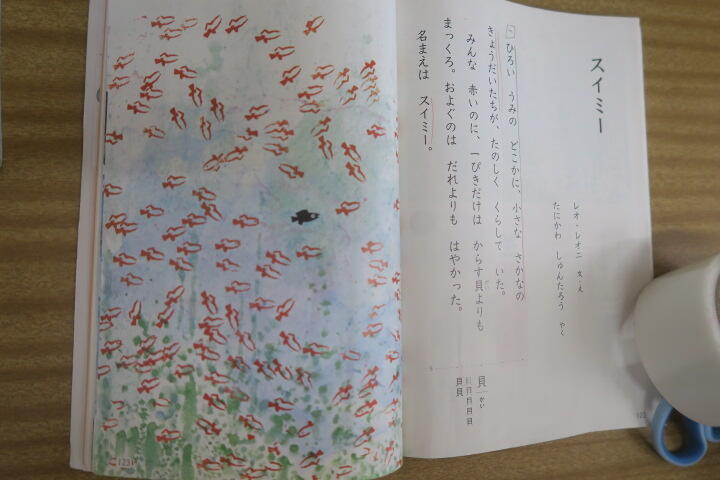 スイミー
レオ・レオニ 文・え
たにかわ しゅんたろう やく
一 ひろい うみの どこかに、小さな さかなの
きょうだいたちが、たのしく くらして いた。
みんな 赤いのに、一ぴきだけは からす貝よりも
まっくろ。およぐのは だれよりも はやかった。
名まえは スイミー。
貝 かい
貝貝
123